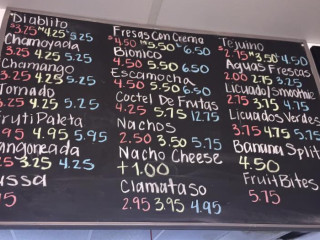 Diablito
$3.25 M$4.25 L$5.25
Chamoyada
3.25 4.25 5.25
Chamango
3.25 4.25 5.25
Tornado
3.25 4.25 5.25
FrutiPaleta
3.95 4.95 5.95
angoneada
3.25 4.25
ussa
Fresas Con Crema
$4.50 M$5.50 L$6.50
Bionico
4.50 5.50 6.50
Escamocha
4.50 5.50 6.50
Coctel De Frutas
4.25 5.75 12.75
Nachos
2.50 3.50 5.75
Nacho Cheese
+1.00
Clamataso
2.95 3.95 4.95
Tejuino
$2.75 M$3.50 L$4.50
Aguas Frescas
2.00 2.75 3.25
Licuado/Smoothie
2.75 3.75 4.75
Licuados Verdes
3.75 4.75 5.75
Banana Split
4.50
Fruit Bites
5.75